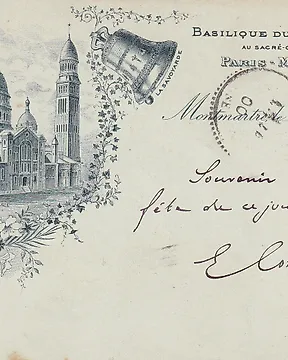 BASILIQUE DU
AU SACRÉ-C
PARIS - M
LA SAVOYARDE
Montmartre
00
Souvenir
fête de ce jou
E